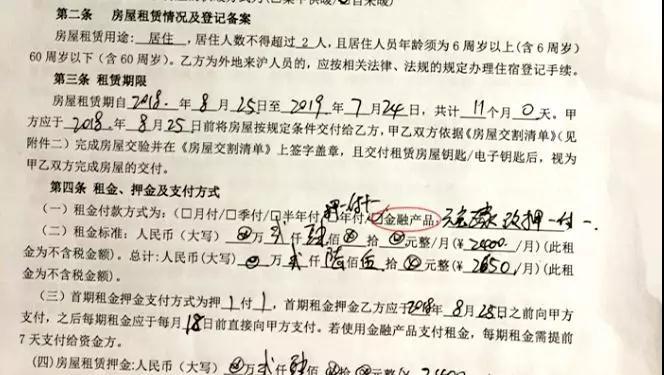 第二条 房屋租赁情况及登记备案
房屋租赁用途: 居住 ,居住人数不得超过 2 人,且居住人员年龄须为 6 周岁以上(含 6 周岁)
60 周岁以下(含 60 周岁)。乙方为外地来沪人员的,应按相关法律、法规的规定办理住宿登记手续。
第三条 租赁期限
房屋租赁期自 2018. 年 8 月 25 日至 2019 年 7 月 24 日,共计 11 个月 0 天。甲
方应于 2018 年 8 月 25 日前将房屋按规定条件交付给乙方,甲乙双方依据《房屋交割清单》(见
附件二)完成房屋交验并在《房屋交割清单》上签字盖章,且交付租赁房屋钥匙/电子钥匙后,视为
甲乙双方完成房屋的交付。
第四条 租金、押金及支付方式
押一付十
(一)租金付款方式为:(□月付/□季付/□半年付 年付/☑金融产品, 押一付一.
(二)租金标准:人民币(大写) 万 贰 仟 肆 佰 拾 元整/月(¥ 2400 /月)(此租
金为不含税金额)。总计:人民币(大写) 万 贰 仟 陆 佰 伍 拾 元整(¥ 2650 /月)(此租
金为不含税金额)。
(三)首期租金押金支付方式为押 1 付 1 ,首期租金押金乙方应于 2018 年 8 月 25 日之前向甲方
支付,之后每期租金应于每月 18 日前直接向甲方支付。若使用金融产品支付租金,每期租金需提前
7 天支付给资金方。
(四)房屋租赁押金:人民币(大写) 万 贰 仟 肆 佰 拾 元整(¥ 2400